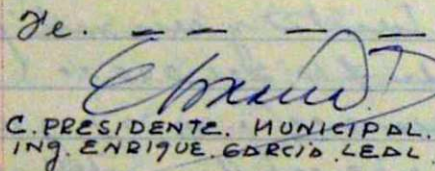 fe. — — — —
C. PRESIDENTE. MUNICIPAL.
ING. ENRIQUE. GARCIA. LEAL.